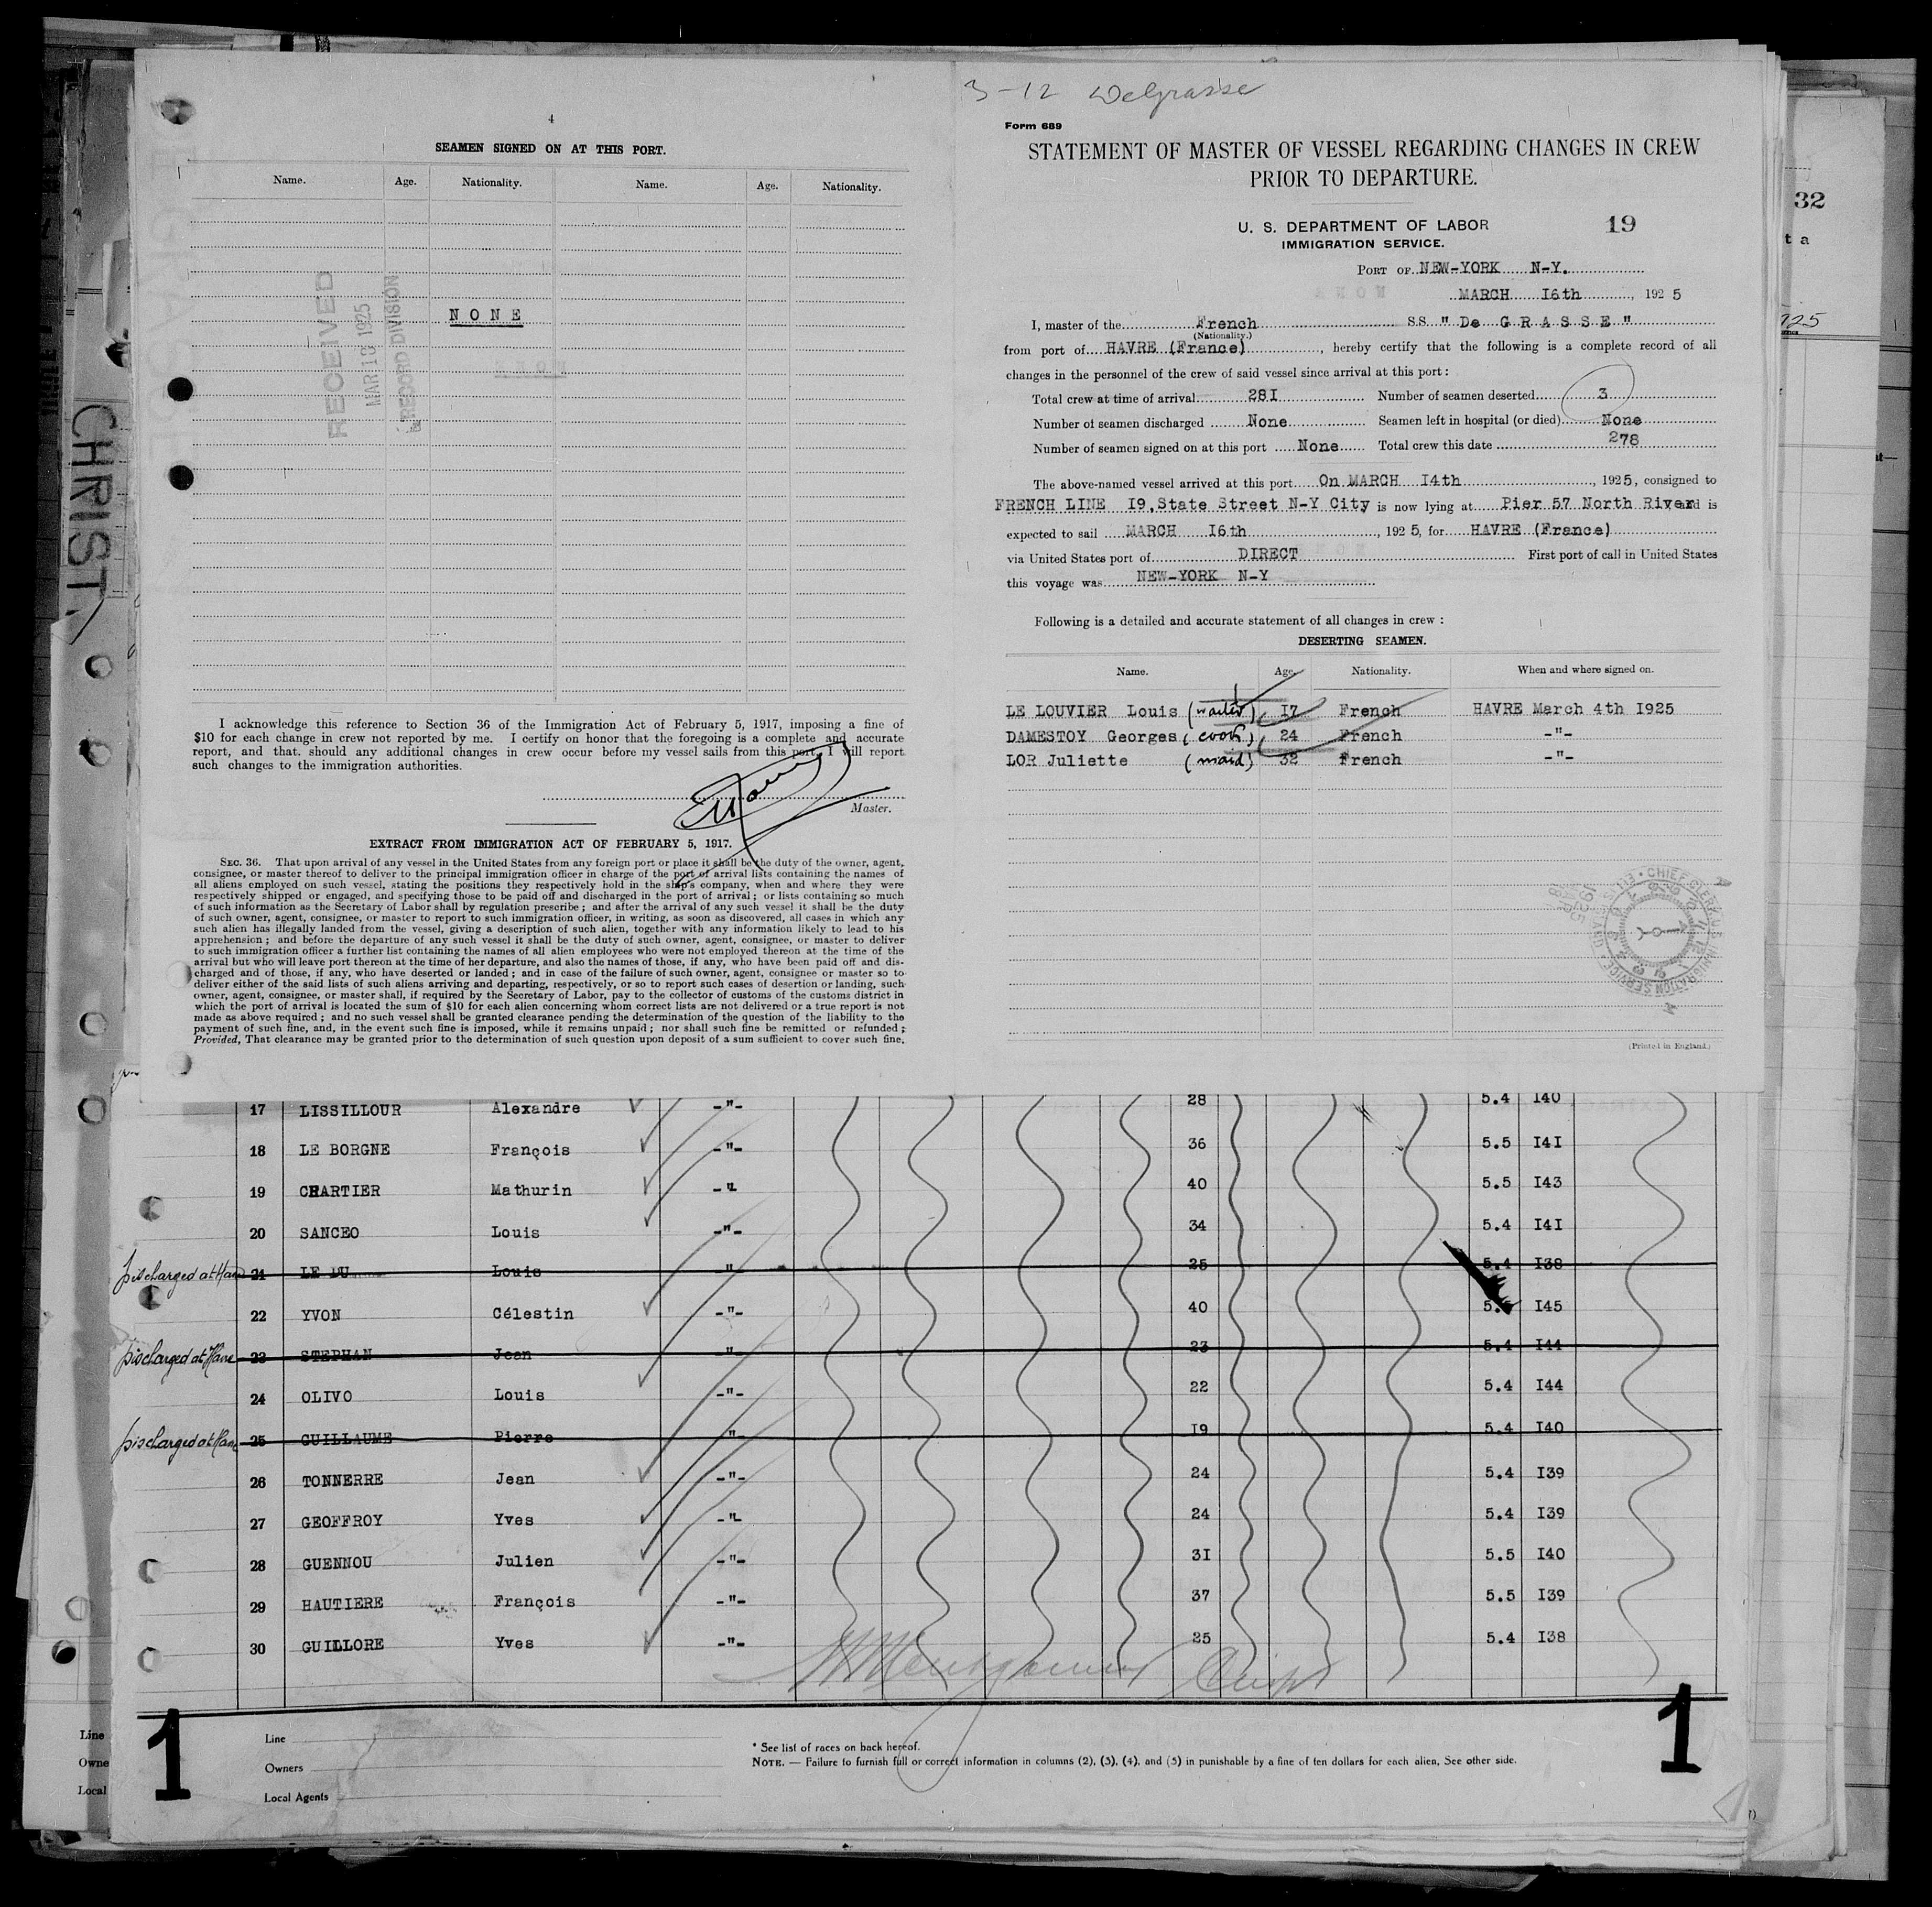 4
SEAMEN SIGNED ON AT THIS PORT.
Name. Age. Nationality. Name. Age. Nationality.
NONE
RECEIVED
MAR 18 1925
RECORD DIVISION
I acknowledge this reference to Section 36 of the Immigration Act of February 5, 1917, imposing a fine of
$10 for each change in crew not reported by me. I certify on honor that the foregoing is a complete and accurate
report, and that should any additional changes in crew occur before my vessel sails from this port, I will report
such changes to the immigration authorities.
Master.
EXTRACT FROM IMMIGRATION ACT OF FEBRUARY 5, 1917.
SEC. 36. That upon arrival of any vessel in the United States from any foreign port or place it shall be the duty of the owner, agent,
consignee, or master thereof to deliver to the principal immigration officer in charge of the port of arrival lists containing the names of
all aliens employed on such vessel, stating the positions they respectively hold in the ship's company, when and where they were
respectively shipped or engaged, and specifying those to be paid off and discharged in the port of arrival; or lists containing so much
of such information as the Secretary of Labor shall by regulation prescribe; and after the arrival of any such vessel it shall be the duty
of such owner, agent, consignee, or master to report to such immigration officer, in writing, as soon as discovered, all cases in which any
such alien has illegally landed from the vessel, giving a description of such alien, together with any information likely to lead to his
apprehension; and before the departure of any such vessel it shall be the duty of such owner, agent, consignee, or master to deliver
to such immigration officer a further list containing the names of all alien employees who were not employed thereon at the time of the
arrival but who will leave port thereon at the time of her departure, and also the names of those, if any, who have been paid off and dis-
charged and of those, if any, who have deserted or landed; and in case of the failure of such owner, agent, consignee or master so to
deliver either of the said lists of such aliens arriving and departing, respectively, or so to report such cases of desertion or landing, such
owner, agent, consignee, or master shall, if required by the Secretary of Labor, pay to the collector of customs of the customs district in
which the port of arrival is located the sum of $10 for each alien concerning whom correct lists are not delivered or a true report is not
made as above required; and no such vessel shall be granted clearance pending the determination of the question of the liability to the
payment of such fine, and, in the event such fine is imposed, while it remains unpaid; nor shall such fine be remitted or refunded;
Provided, That clearance may be granted prior to the determination of such question upon deposit of a sum sufficient to cover such fine.
3-12 DeGrasse
Form 689
STATEMENT OF MASTER OF VESSEL REGARDING CHANGES IN CREW
PRIOR TO DEPARTURE.
U. S. DEPARTMENT OF LABOR
IMMIGRATION SERVICE.
19
PORT OF NEW-YORK N-Y.
MARCH I6th, 1925
I, master of the French SS. "De GRASSE"
(Nationality.)
from port of HAVRE (France), hereby certify that the following is a complete record of all
changes in the personnel of the crew of said vessel since arrival at this port:
Total crew at time of arrival 28I Number of seamen deserted 3
Number of seamen discharged None Seamen left in hospital (or died) None
Number of seamen signed on at this port None Total crew this date 278
The above-named vessel arrived at this port On MARCH I4th, 1925, consigned to
FRENCH LINE I9,State Street N-Y City is now lying at Pier 57 North River and is
expected to sail MARCH I6th, 1925, for HAVRE (France)
via United States port of DIRECT First port of call in United States
this voyage was NEW-YORK N-Y
Following is a detailed and accurate statement of all changes in crew:
DESERTING SEAMEN.
Name. Age. Nationality. When and where signed on.
LE LOUVIER Louis (waiter) I7 French HAVRE March 4th I925
DAMESTOY Georges (cook) 24 French -"-
LOR Juliette (maid) 32 French -"-
(Printed in England.)
CHRIST
32
t a
17 LISSILLOUR Alexandre -"- 28 5.4 I40
18 LE BORGNE François -"- 36 5.5 I4I
19 CHARTIER Mathurin -"- 40 5.5 I43
20 SANCEO Louis -"- 34 5.4 I4I
Discharged at Havre 21 LE DU Louis -"- 25 5.4 I38
22 YVON Célestin -"- 40 5. I45
Discharged at Havre 23 STEPHAN Jean -"- 23 5.4 I44
24 OLIVO Louis -"- 22 5.4 I44
Discharged at Havre 25 GUILLAUME Pierre -"- I9 5.4 I40
26 TONNERRE Jean -"- 24 5.4 I39
27 GEOFFROY Yves -"- 24 5.4 I39
28 GUENNOU Julien -"- 3I 5.5 I40
29 HAUTIERE François -"- 37 5.5 I39
30 GUILLORE Yves -"- 25 5.4 I38
1 1
Line
Owners
Local Agents
* See list of races on back hereof.
NOTE. — Failure to furnish full or correct information in columns (2), (3), (4), and (5) in punishable by a fine of ten dollars for each alien, See other side.
Line
Owne
Local